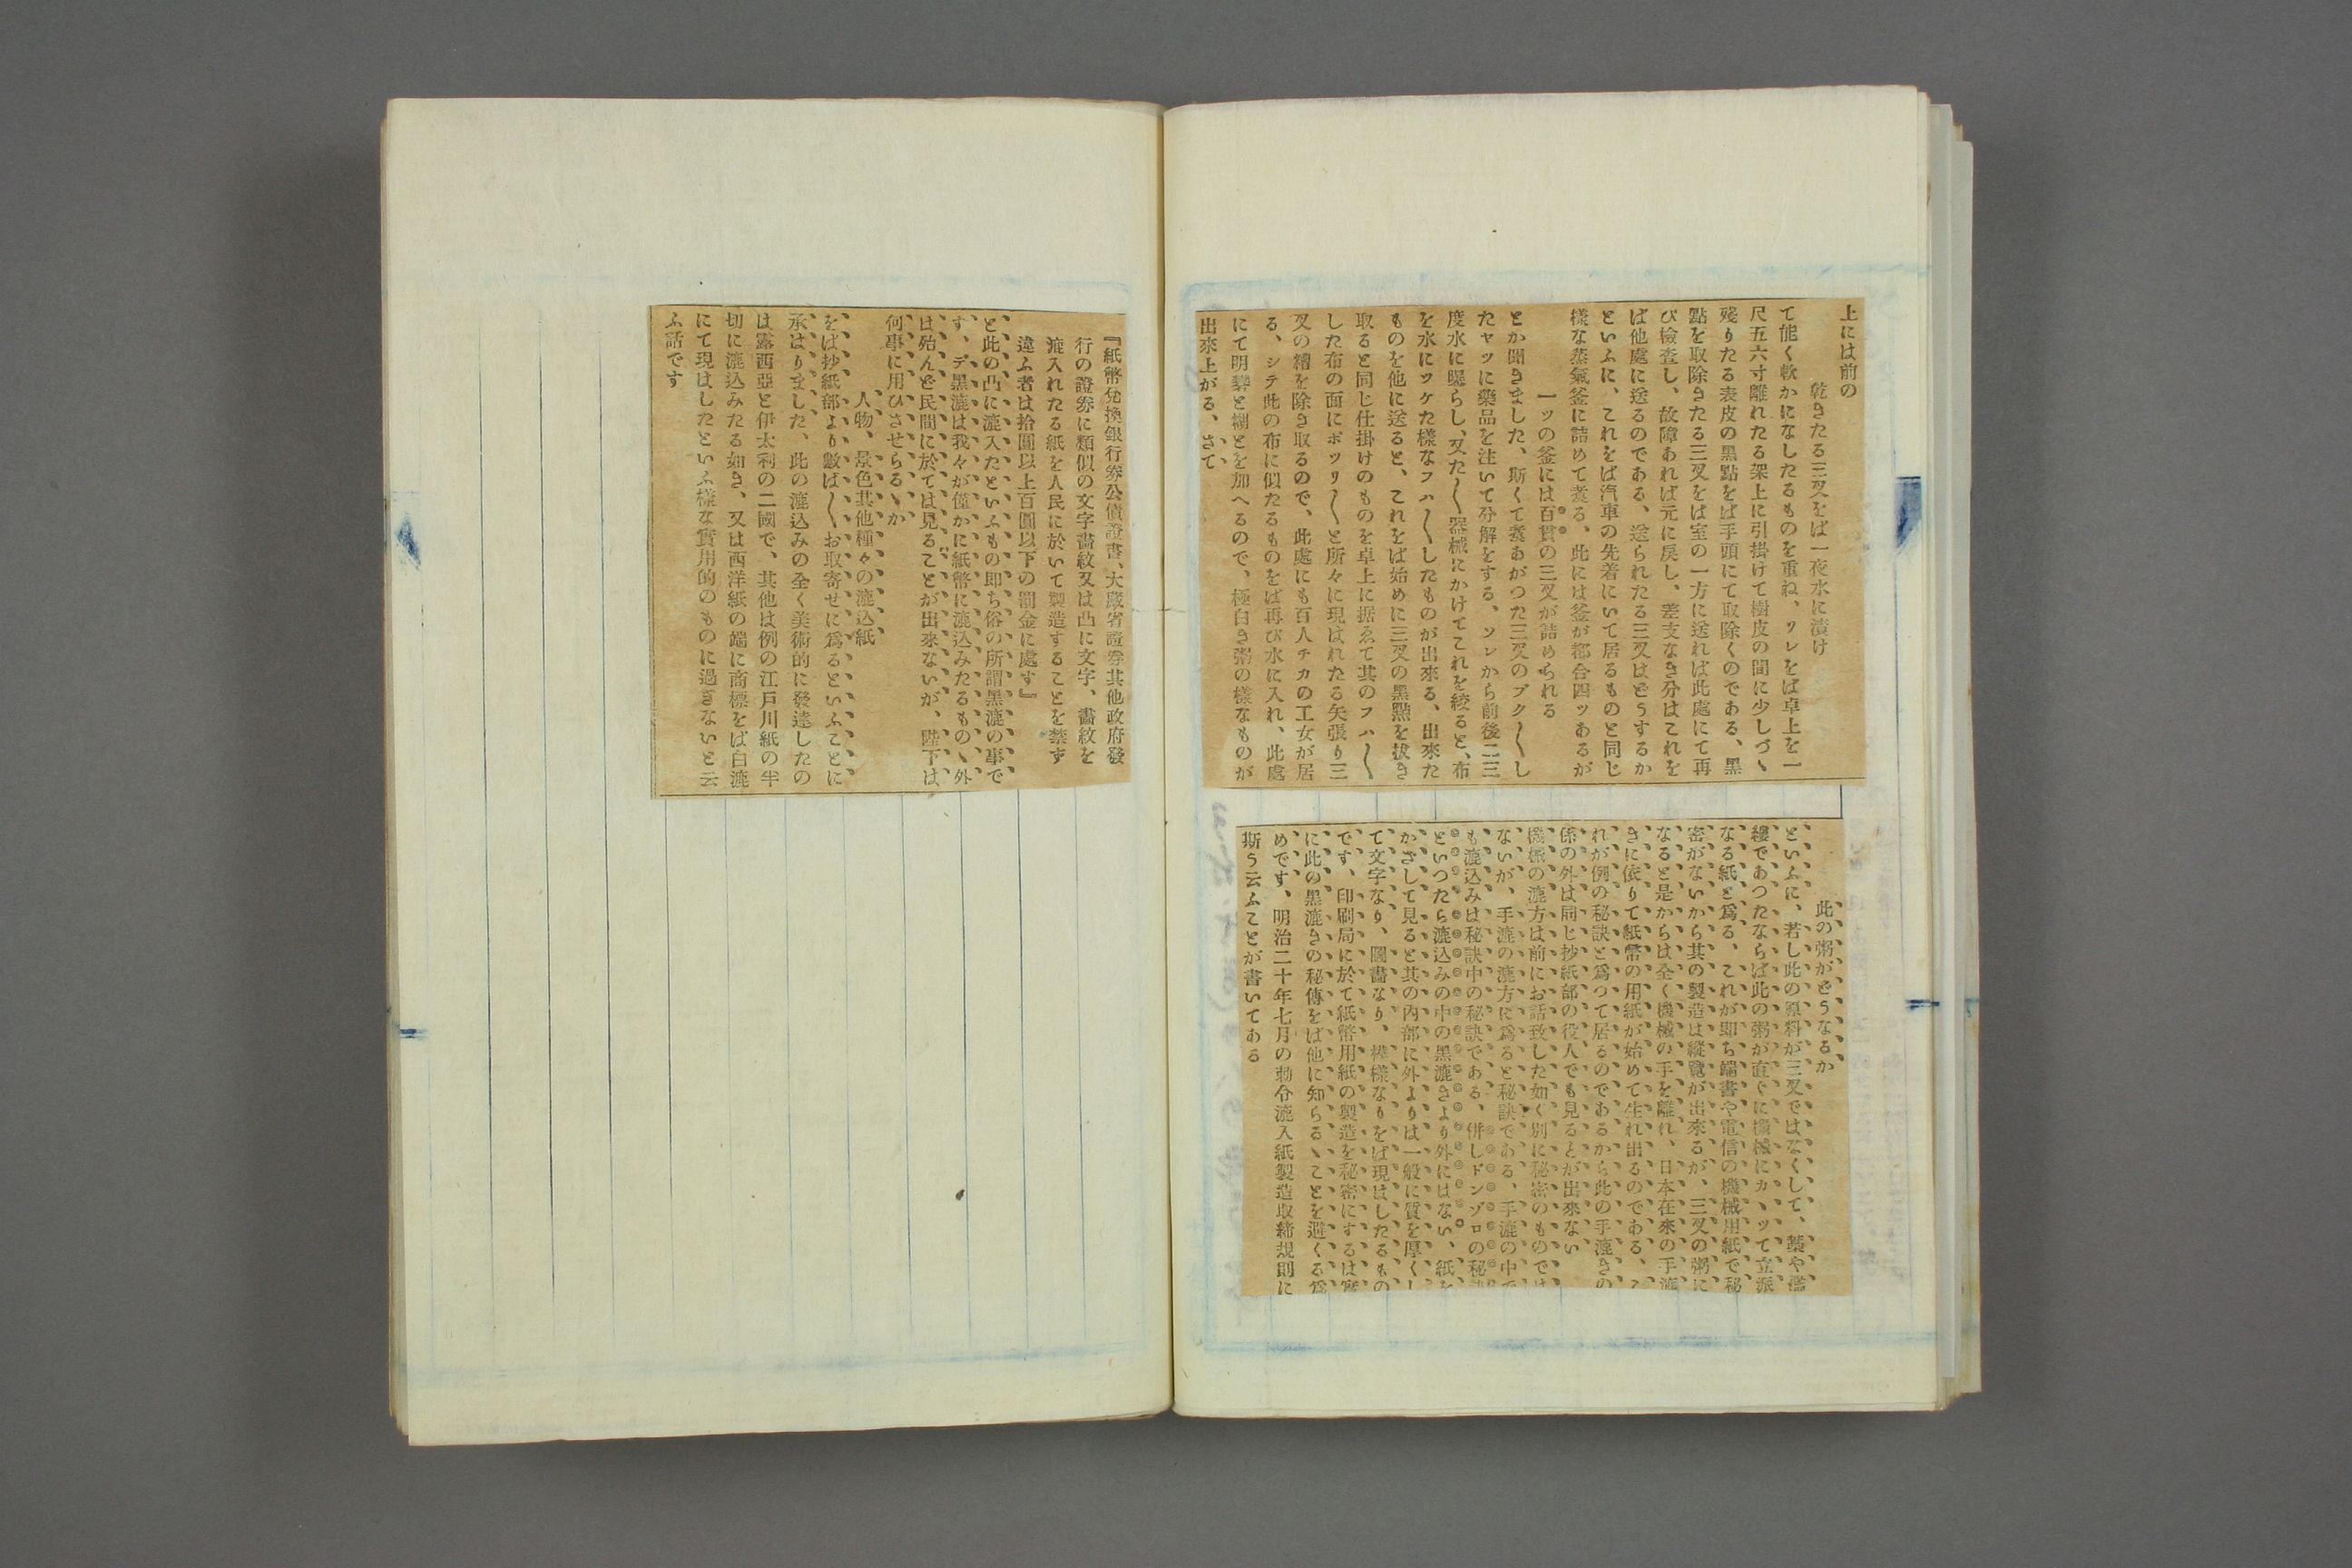 上には前の
乾きたる三叉をば一夜水に漬け
て能く軟かになしたるものを重ね、ソレをば卓上を一
尺五六寸離れたる架上に引掛けて樹皮の間に少しづゝ
殘りたる表皮の黑點をば手頭にて取除くのである、黑
點を取除きたる三叉をば室の一方に送れば此處にて再
び檢査し、故障あれば元に戻し、差支なき分はこれを
ば他處に送るのである、送られたる三叉はどうするか
といふに、これをば汽車の先着にいて居るものと同じ
樣な蒸氣釜に詰めて煮る、此には釜が都合四ッあるが
一ッの釜には百貫の三叉が詰められる
とか聞きました、斯くて煮あがつた三叉のブク〱し
たヤッに藥品を注いて分解をする、ソレから前後二三
度水に曝らし、又た〱器械にかけてこれを絞ると、布
を水にツケた樣なフハ〱したものが出來る、出來た
ものを他に送ると、これをば始めに三叉の黑點を拔き
取ると同じ仕掛けのものを卓上に据ゑて其のフハ〱
した布の面にポツリ〱と所々に現はれたる矢張り三
叉の糟を除き取るので、此處にも百人チカの工女が居
る、シテ此の布に似たるものをば再び水に入れ、此處
にて明礬と糊とを加へるので、極白き粥の樣なものが
出來上がる、さて
此の粥がどうなるか
といふに、若し此の原料が三叉ではなくして、藁や襤
褸であつたならば此の粥が直ぐに機械にカヽツて立派
なる紙と爲る、これが即ち端書や電信の機械用紙で秘
密がないから其の製造は縱覽が出來るが、三叉の粥に
なると是からは全く機械の手を離れ、日本在來の手漉
きに依りて紙幣の用紙が始めて生れ出るのである、こ
れが例の秘訣と爲つて居るのであるから此の手漉きの
係の外は同じ抄紙部の役人でも見るとが出來ない
機械の漉方は前にお話致した如く別に秘密のものでは
ないが、手漉の漉方に爲ると秘訣である、手漉の中で
も漉込みは秘訣中の秘訣である、併しドンゾロの秘
といつたら漉込みの中の黑漉きより外にはない、紙を
かざして見ると其の内部に外よりは一般に質を厚くし
て文字なり、圖畵なり、模樣なりをば現はしたるもの
です、印刷局に於て紙幣用紙の製造を秘密にするは實
に此の黑漉きの秘傳をば他に知らるゝことを避くる爲
めです、明治二十年七月の勅令漉入紙製造取締規則に
斯う云ふことが書いてある
『紙幣兌換銀行券公債證書、大藏省證券其他政府發
行の證券に類似の文字畵紋又は凸に文字、畵紋を
漉入れたる紙を人民に於いて製造することを禁ず
違ふ者は拾圓以上百圓以下の罰金に處す』
と此の凸に漉入たといふもの即ち俗の所謂黑漉の事で
す、デ黑漉は我々が僅かに紙幣に漉込みたるものゝ外
は殆んど民間に於ては見ることが出來ないが、陛下は
何事に用ひさせらるゝか
人物、景色其他種々の漉込紙
をば抄紙部より數ば〱お取寄せに爲るといふことに
承はりました、此の漉込みの全く美術的に發達したの
は露西亞と伊太利の二國で、其他は例の江戸川紙の半
切に漉込みたる如き、又は西洋紙の端に商標をば白漉
にて現はしたといふ樣な實用的のものに過ぎないと云
ふ話です